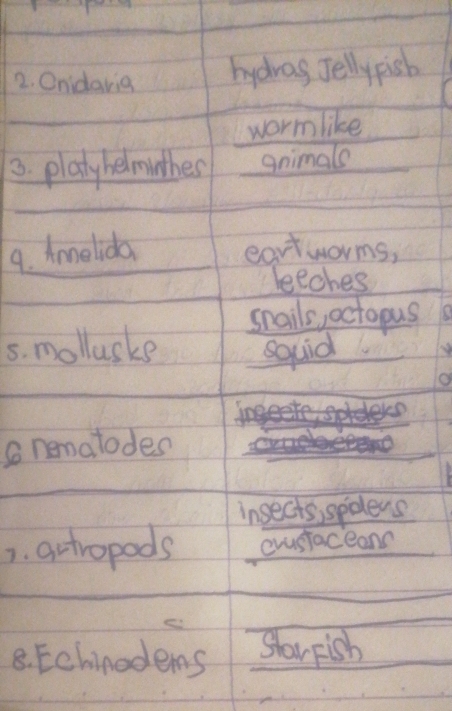 2. Cnidaria hydras, Jellyfish
wormlike
3. platyhelminthes animals
4. Annelida eartworms,
leeches
snails, octopus
5. mollusks squid
insects, spiders
6 nematodes crustaceans
insects, spiders
7. artropods crustaceans
8. Echinodems Starfish